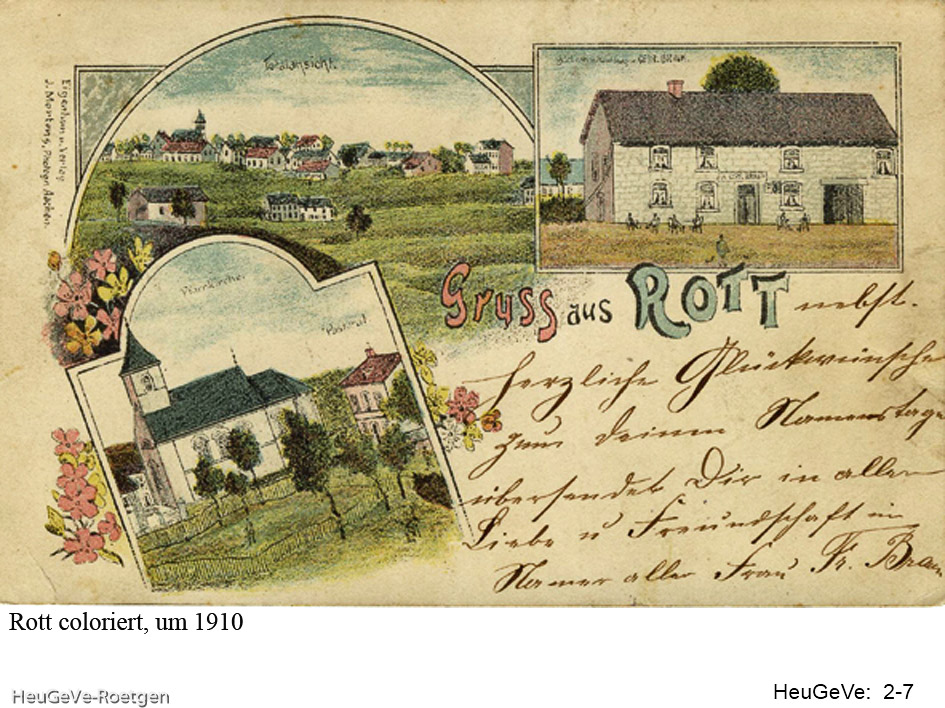 Totalansicht.
Eigenthum u. Verlag
J. Mertens, Photogr. Aachen.
Pfarrkirche.
Pastorat
Gruss aus ROTT nebst.
herzliche Glückwünsche
zum deinem Namenstage
übersendet Dir in aller
Liebe u Freundschaft im
Namen aller Frau Fr. Braun
Rott coloriert, um 1910
HeuGeVe-Roetgen
HeuGeVe: 2-7